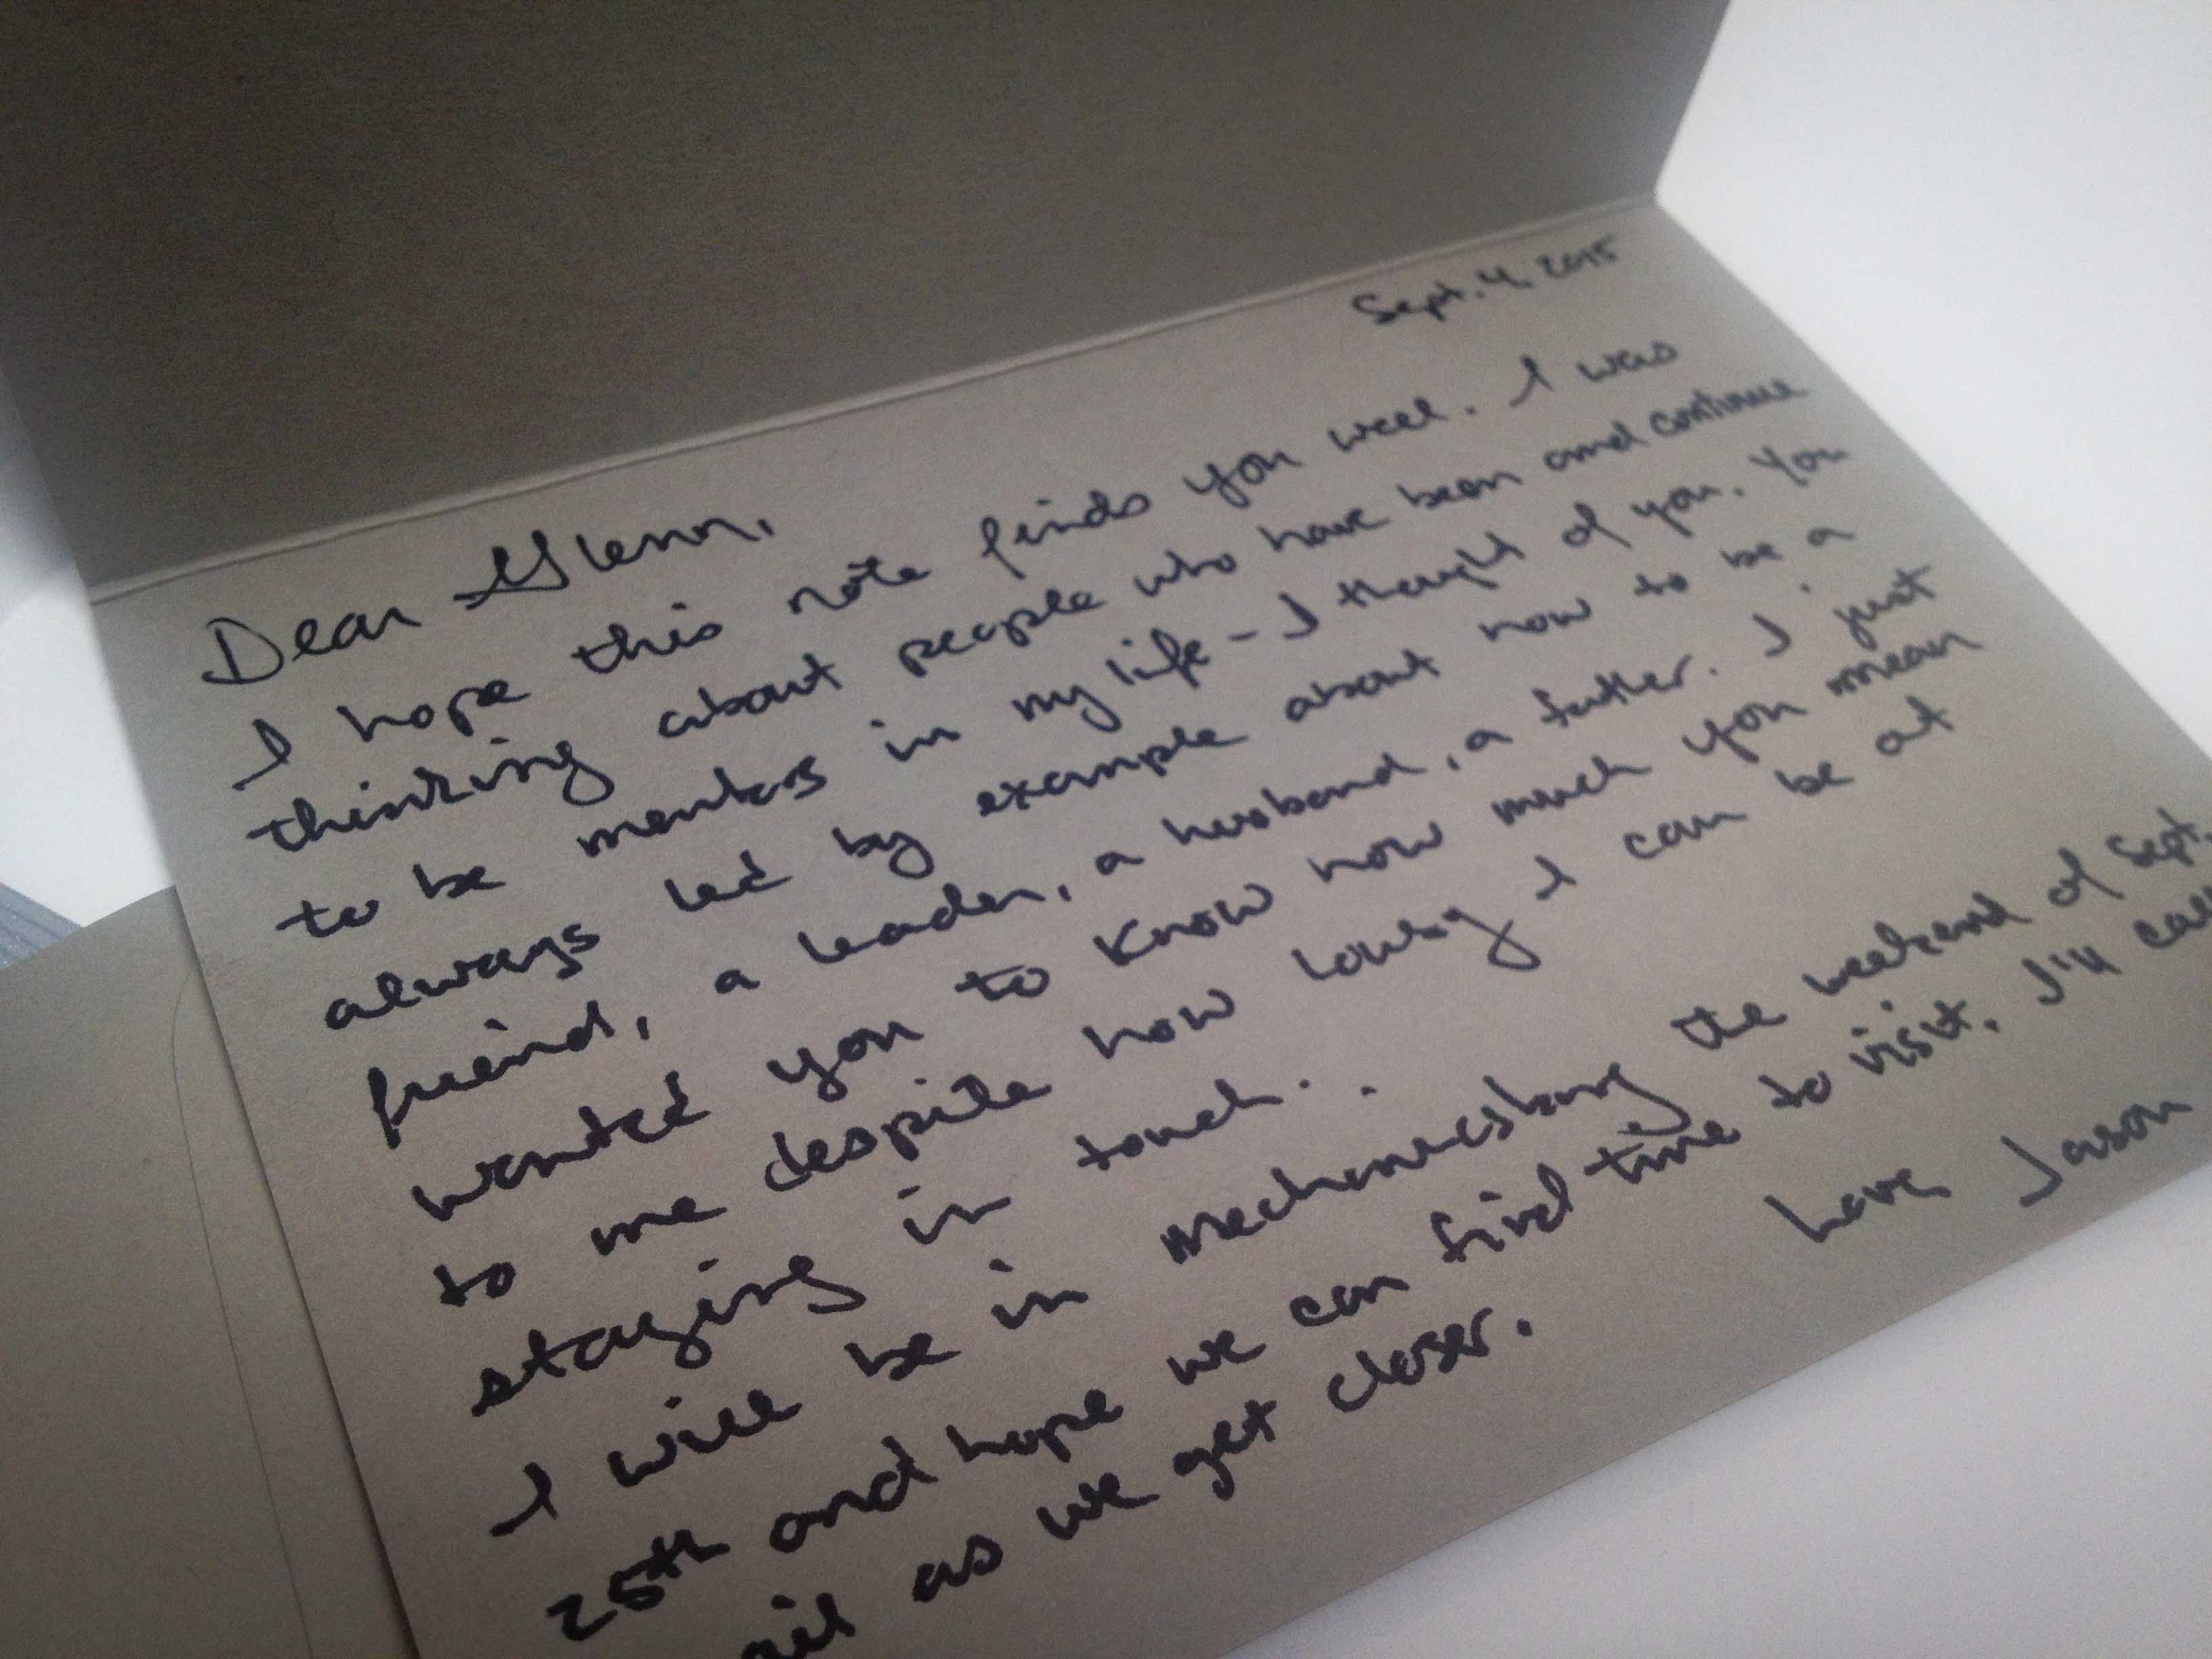 Sept. 4, 2015
Dear Glenn,
I hope this note finds you well. I was
thinking about people who have been and continue
to be mentors in my life - I thought of you. You
always led by example about how to be a
friend, a leader, a husband, a father. I just
wanted you to know how much you mean
to me despite how lousy I can be at
staying in touch.
I will be in Mechanicsburg the weekend of Sept.
25th and hope we can find time to visit. I'll call
as we get closer.
Love, Jason